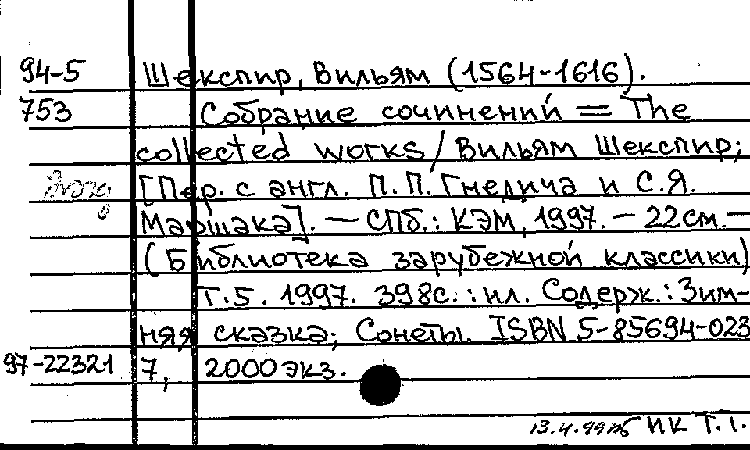 94-5 Шекспир, Вильям (1564-1616).
753 Собрание сочинений = The
collected works / Вильям Шекспир;
[Пер. с англ. П.П. Гнедича и С.Я.
Маршака]. — СПб.: КЭМ, 1997. — 22см. —
(Библиотека зарубежной классики)
Т.5. 1997. 398с.: ил. Содерж.: Зим-
няя сказка; Сонеты. ISBN 5-85694-023
97-22321 7, 2000 экз.
ИК Т.1.